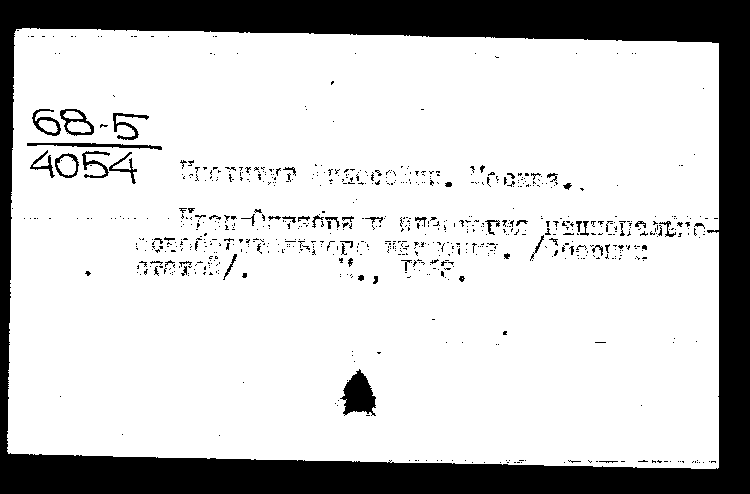 68-5
4054
Институт философии. Москва.
Идеи Октября и идеология национально-
освободительного движения. /Сборник
статей/. М., 1968.